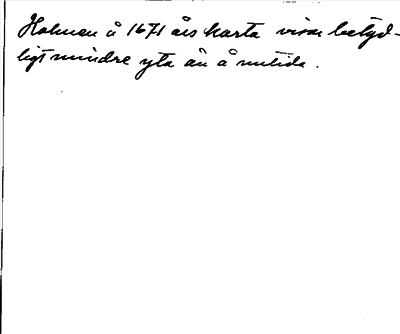 Holmen å 1671 års karta visar betyd-
ligt mindre yta än å nutida.